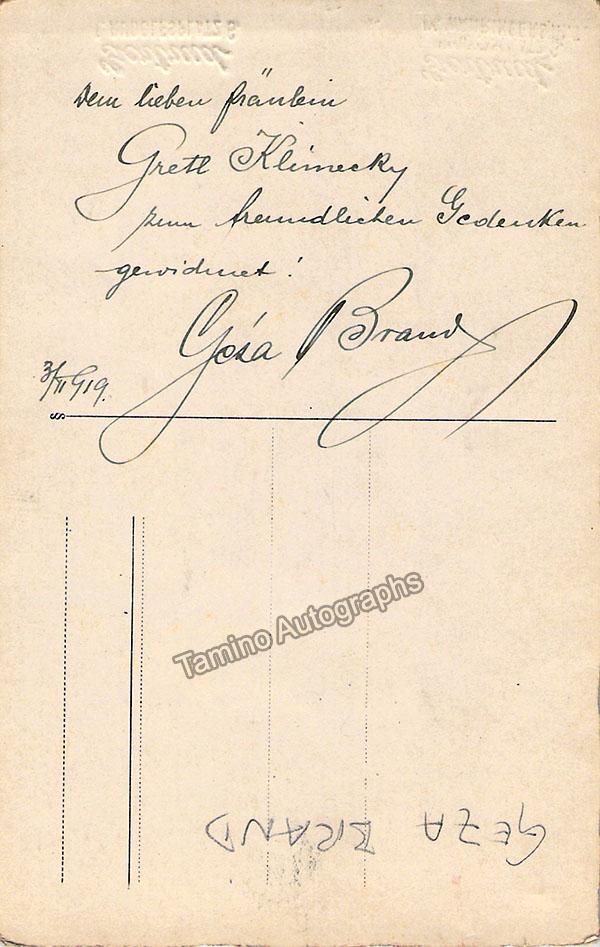 Dem lieben Fräulein
Gretl Klimecky
zum freundlichen Gedenken
gewidmet!
Géza Brand
3/II 919.
Tamino Autographs
GEZA BRAND